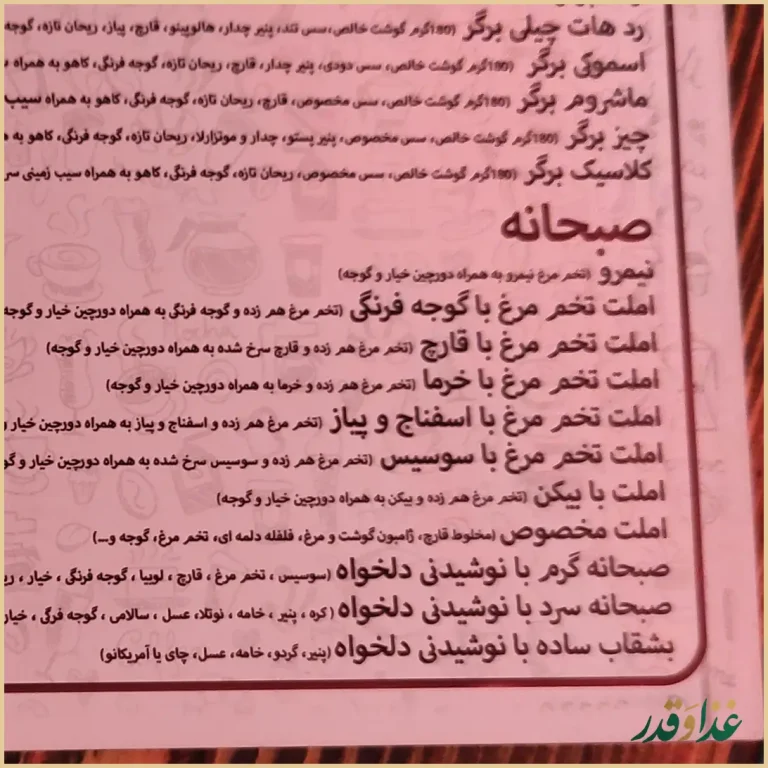 رد هات چیلی برگر (180گرم گوشت خالص، سس تند، پنیر چدار، هالوپینو، قارچ، پیاز، ریحان تازه، گوجه
اسموکی برگر (180گرم گوشت خالص، سس دودی، پنیر چدار، قارچ، ریحان تازه، گوجه فرنگی، کاهو به همراه
ماشروم برگر (180گرم گوشت خالص، سس مخصوص، قارچ، ریحان تازه، گوجه فرنگی، کاهو به همراه سیب
چیز برگر (180گرم گوشت خالص، سس مخصوص، پنیر پستو، چدار و موتزارلا، ریحان تازه، گوجه فرنگی، کاهو به
کلاسیک برگر (180گرم گوشت خالص، سس مخصوص، ریحان تازه، گوجه فرنگی، کاهو به همراه سیب زمینی
صبحانه
نیمرو (تخم مرغ نیمرو به همراه دورچین خیار و گوجه)
املت تخم مرغ با گوجه فرنگی (تخم مرغ هم زده و گوجه فرنگی به همراه دورچین خیار و گوجه
املت تخم مرغ با قارچ (تخم مرغ هم زده و قارچ سرخ شده به همراه دورچین خیار و گوجه)
املت تخم مرغ با خرما (تخم مرغ هم زده و خرما به همراه دورچین خیار و گوجه)
املت تخم مرغ با اسفناج و پیاز (تخم مرغ هم زده و اسفناج و پیاز به همراه دورچین خیار و
املت تخم مرغ با سوسیس (تخم مرغ هم زده و سوسیس سرخ شده به همراه دورچین خیار و
املت با بیکن (تخم مرغ هم زده و بیکن به همراه دورچین خیار و گوجه)
املت مخصوص (مخلوط قارچ، ژامبون گوشت و مرغ، فلفله دلمه ای، تخم مرغ، گوجه و...)
صبحانه گرم با نوشیدنی دلخواه (سوسیس ، تخم مرغ ، قارچ ، لوبیا ، گوجه فرنگی ، خیار ،
صبحانه سرد با نوشیدنی دلخواه (کره ، پنیر ، خامه ، نوتلا، عسل ، سالامی ، گوجه فرگی ، خیار
بشقاب ساده با نوشیدنی دلخواه (پنیر، گردو، خامه، عسل، چای یا آمریکانو)
غذا و قدر